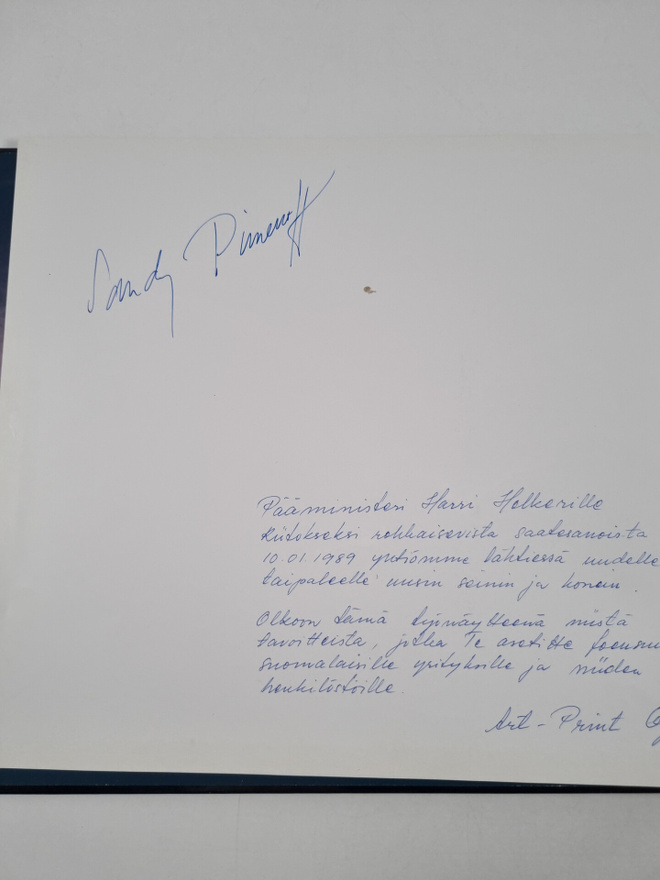 Sandy Pimenoff
Pääministeri Harri Holkerille
kiitokseksi rohkaisevista saatesanoista
10.01.1989 yhtiömme lähtiessä uudelle
taipaleelle uusin seinin ja konein.
Olkoon tämä työnäytteenä niistä
tavoitteista, jotka Te asetitte
suomalaisille yrityksille ja niiden
henkilöstöille.
Art-Print